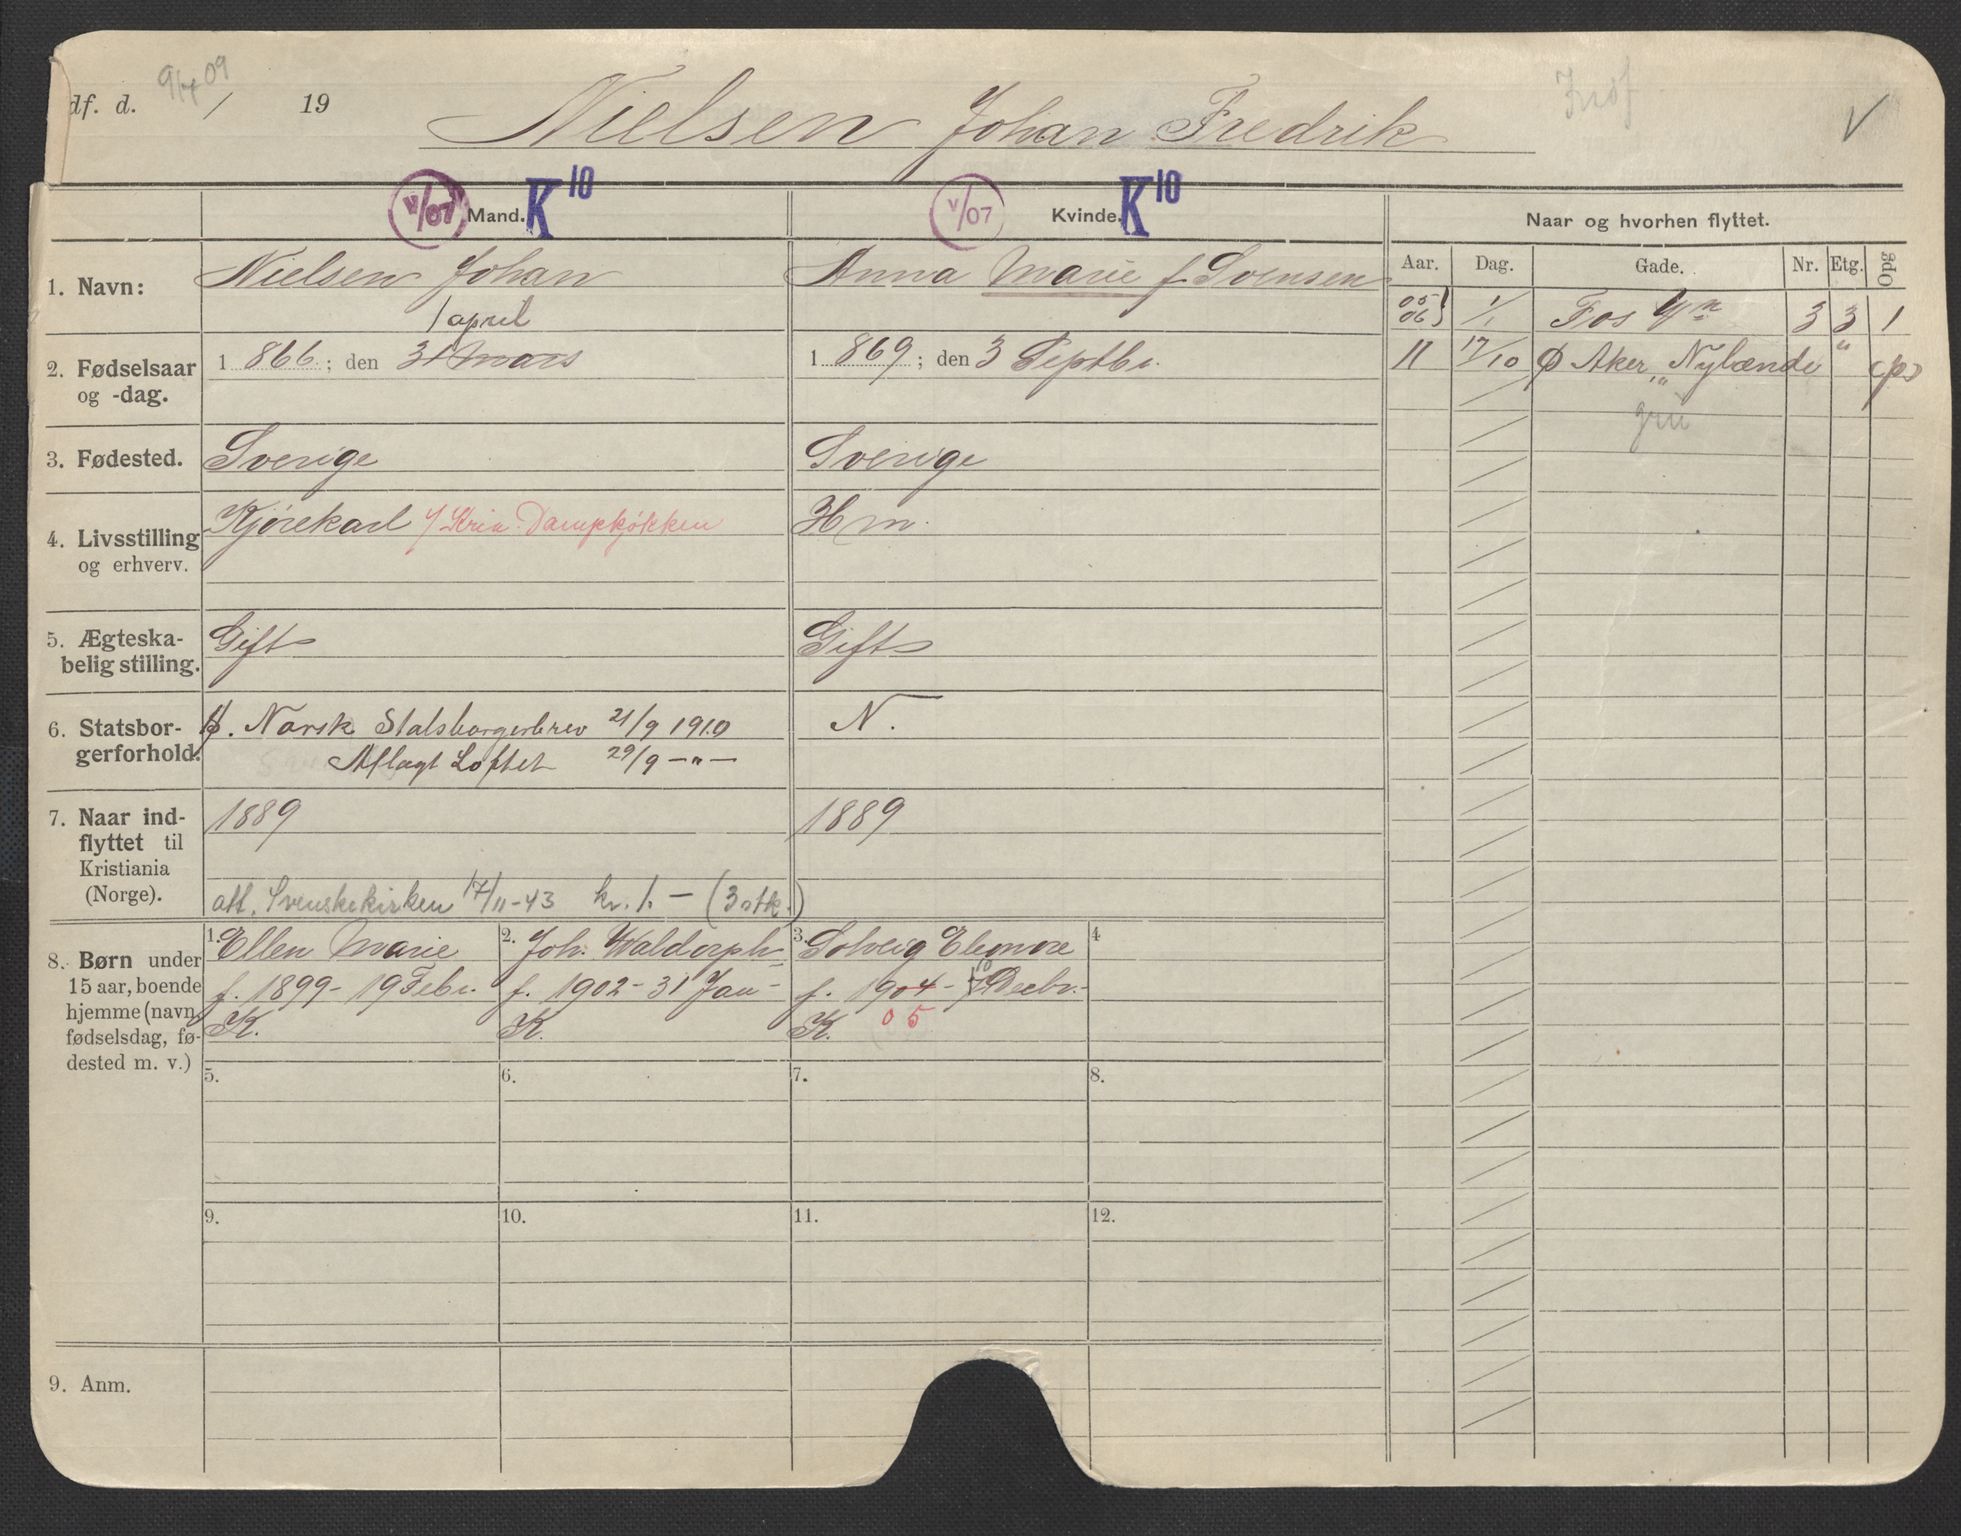 df. d. 9/4 09 / 19
Nielsen Johan Fredrik
V
V/07 Mand. K 10
V/07 Kvinde. K 10
Naar og hvorhen flyttet.
Aar. Dag. Gade. Nr. Etg. Opg
1. Navn: Nielsen Johan
Anna Marie f. Svensen
05 06 } 1/1 Fos Vn 3 3 1
1 april
2. Fødselsaar og -dag. 1 866 ; den 31 Mars
1 869 ; den 3 Septbr.
11 17/10 Ø Aker Nylænde " (ps)
3. Fødested. Sverige
Sverige
4. Livsstilling og erhverv. Kjørekarl / Kria. Dampkjøkken
Hm.
5. Ægteskabelig stilling. Gift
Gift
6. Statsborgerforhold. Norsk Statsborgerbrev 21/9 1910
N.
Aflagt Løftet 29/9 — " —
7. Naar indflyttet til Kristiania (Norge). 1889
1889
att. Svenskekirken 17/11-43 kr. 1. — (3 stk.)
8. Børn under 15 aar, boende hjemme (navn, fødselsdag, fødested m. v.)
1. Ellen Marie
f. 1899 - 19 Febr.
K.
2. Joh. Waldorph
f. 1902 - 31 Jan -
K.
3. Solveig Eleonore
f. 1904 - 10 Decbr.
K. 05
4
5.
6.
7.
8.
9.
10.
11.
12.
9. Anm.